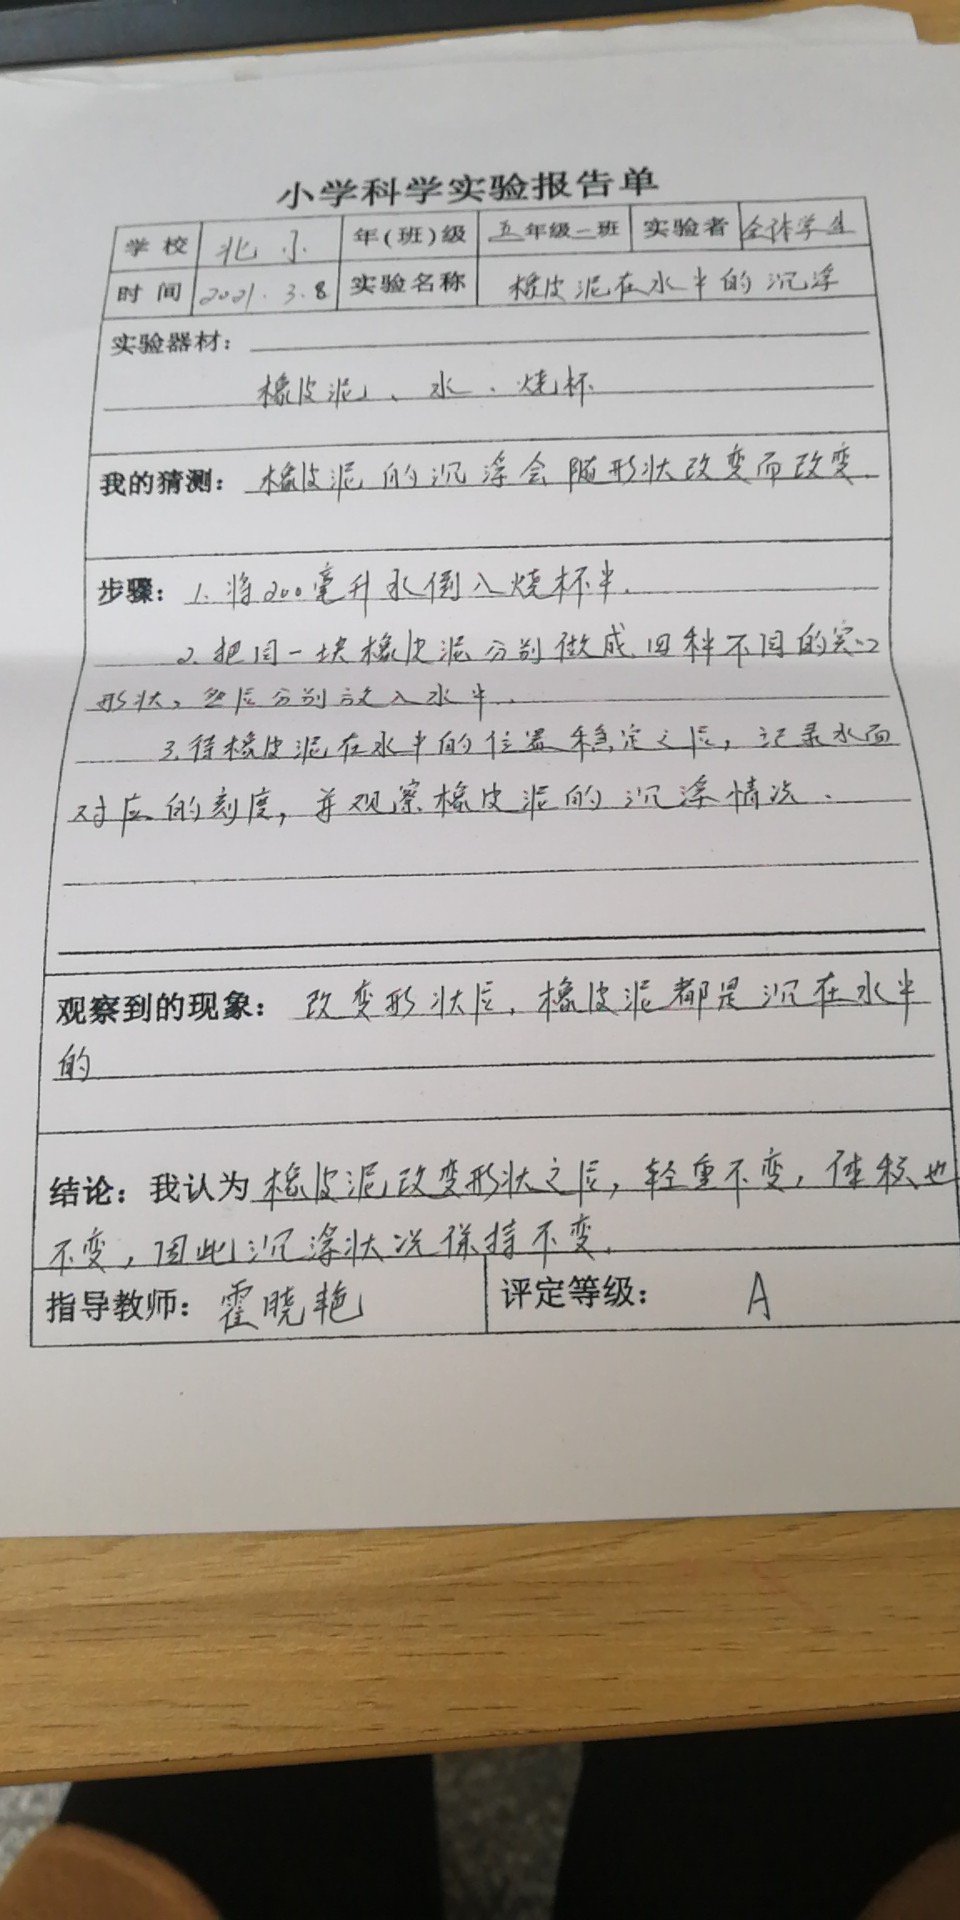 小学科学实验报告单
学校 北小 年(班)级 五年级一班 实验者 全体学生
时间 2021.3.8 实验名称 橡皮泥在水中的沉浮
实验器材：
橡皮泥、水、烧杯
我的猜测：橡皮泥的沉浮会随形状改变而改变.
步骤：1.将200毫升水倒入烧杯中.
2.把同一块橡皮泥分别做成四种不同的实心
形状，然后分别放入水中.
3.待橡皮泥在水中的位置稳定之后，记录水面
对应的刻度，并观察橡皮泥的沉浮情况.
观察到的现象：改变形状后，橡皮泥都是沉在水中
的
结论：我认为橡皮泥改变形状之后，轻重不变，体积也
不变，因此沉浮状况保持不变.
指导教师：霍晓艳 评定等级：A